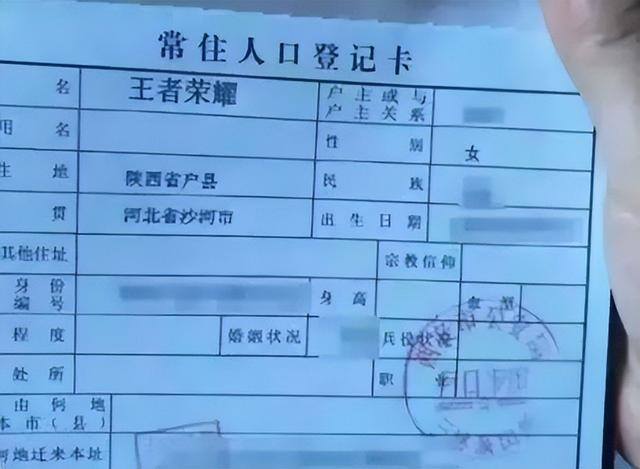 常住人口登记卡
名 王者荣耀 户主或与
户主关系
用名 性别 女
生地 陕西省户县 民族
贯 河北省沙河市 出生日期
其他住址 宗教信仰
身份
编号 身高
程度 婚姻状况 兵役状况
处所 职业
由何地
本市(县)
何地迁来本址